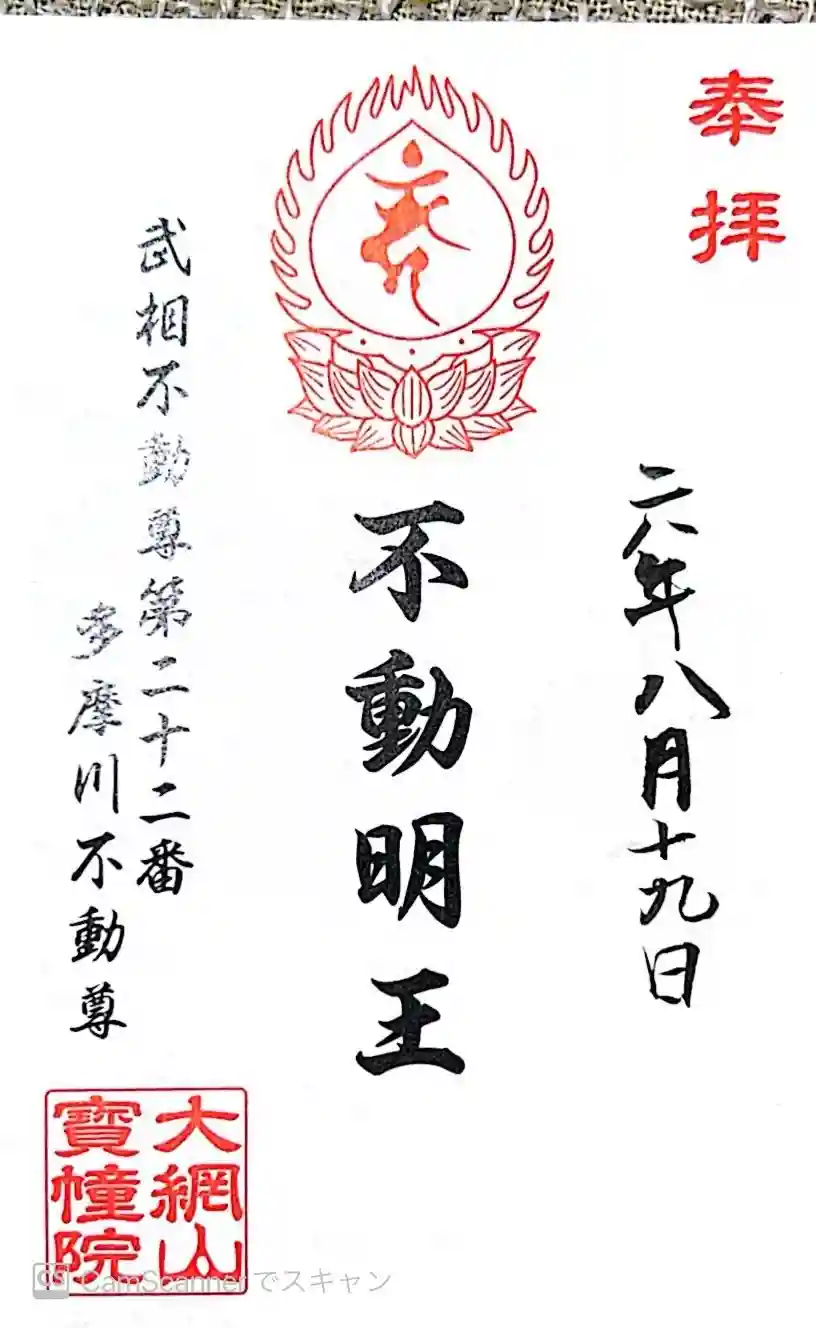 奉拝
二八年八月十九日
不動明王
武相不動尊第二十二番
多摩川不動尊
大網山
寶幢院
CS CamScannerでスキャン